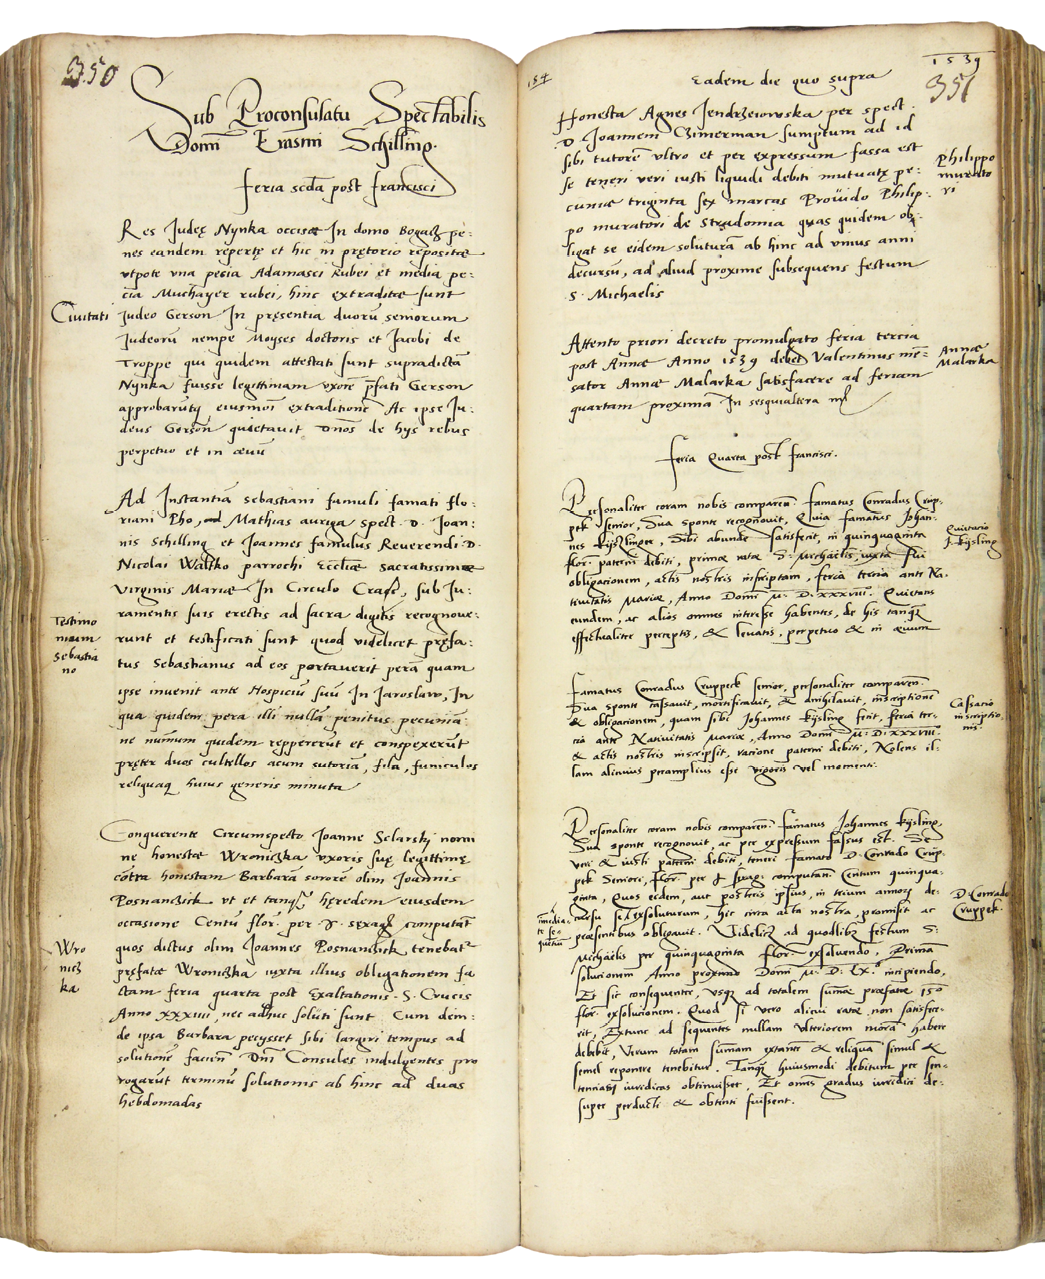 350
Sub Proconsulatu Spectabilis
Domī Erasmi Schilling.
feria scda post francisci
Res Judeę Nynka occisae In domo Bogacz pe:
nes eandem repertę et hic in prętorio repositae
utpote una pecia Adamasci Rubei et media pe:
cia Muchayer rubei, hinc extraditae sunt
Civitati
judeo Gerson In pręsentia duorū seniorum
Judeorū nempe Moyses doctoris et Jacobi de
Troppe qui quidem attestati sunt supradictā
Nynka fuisse legittimam vxorē pfati Gerson
approbarūtq eiusmoi extraditionē Ac ipse Ju:
deus Gerson quietavit dnos de hys rebus
perpetuo et in aevū
Ad Instantiā Sebastiani famuli famati flo:
riani Pho, Mathias auriga spect. D. Joan:
nis Schilling et Joannes famulus Reverendi D.
Nicolai parrochi Eccliae sacratissimae
virginis Mariae In Circulo Crac, sub Ju:
ramentis suis erectis ad sacra digitis recognove:
Testimo
nium
Sebastia
no
runt et testificati sunt quod videlicet pręfa:
tus Sebastianus ad eos portaverit perā quam
ipse invenit ante Hospiciū suū In Jaroslaw, In
qua quidem pera illi nullā penitus pecuniā
ne numum quidem reppererūt et conspexerūt
pręter duos cultellos acum sutoriā, fila, funiculos
reliquaq huius generis minuta
Conquerente Circumspecto Joanne Selarskj nomi
ne honestae Wroniczka vxoris suę legittimę
cōtra honestam Barbarā sororē olim Joannis
Posnanczick ut et tanq hęredem eiusdem
occasione Centū flor. per computat
quos dictus olim Joannes Posnanczick tenebat
Wro
nicz
ka
pręfatae Wroniczka iuxta illius obligationem fa
ctam feria quarta post Exaltationis S. Crucis
Anno XXXIIII, nec adhuc soluti sunt Cum dem:
de ipsa Barbara petysset sibi largiri tempus ad
solutionē faciend Dni Consules indulgentes pro
rogarūt terminū solutionis ab hinc ad duas
hebdomadas
154
1539
351
Eadem die quo supra
Honesta Agnes Jendrzeiowska per spect.
D. Joannem Czimerman sumptum ad id
sibi tutorē ultro et per expressum fassa est
Philippo
murato
ri
se teneri veri iusti liquidi debiti mutuatę pe:
cuniae triginta sex marcas Provido Philip:
po muratori de Stradomia quas quidem ob:
ligat se eidem soluturā ab hinc ad unius anni
decursū, ad aliud proxime subsequens festum
S. Michaelis
Attento priori decreto promulgato feria tercia
post Annae Anno 1539 debet Valentinus
Annae
Malarka
sator Annae Malarka satisfacere ad feriam
quartam proximā In sesquialtera
Feria Quarta post francisci.
Personaliter coram nobis comparen. famatus Conradus Crup-
pek senior, Sua sponte recognovit, Quia famatus Johan-
nes Kijslinger, Sibi abunde satisfecit, in quinquaginta
Quietacio
J. Kijsling
flor. paterni debiti, primae ratae S. Michaelis, iuxta sui
obligacionem, actis nostris inscriptam, feria tercia ante Na-
tivitatis Mariae, Anno Domi M. D. XXXVIII. Quietans
eundem, ac alios omnes interesse habentes, de his tanq
effectualiter perceptis, & levatis, perpetuo & in aevum
Famatus Conradus Cruppeck senior, personaliter comparen.
Sua sponte cassavit, mortificavit, & anihilavit, inscriptionē
Cassacio
inscriptio
nis.
& obligacionem, quam sibi Johannes Kijsling fecit, feria ter-
cia ante Nativitatis Mariae, Anno Domi M. D. XXXVIII.
& actis nostris inscripsit, racione paterni debiti, Nolens il-
lam alicuius peramplius esse vigoris vel momenti.
Personaliter coram nobis comparen. famatus Johannes Kijsling,
Sua sponte recognovit, ac per expressum fassus est. Se
veri & iusti paterni debiti, teneri famato D. Conrado Crup-
pek Seniori, flor. per computan. Centum quinqua-
ginta, Quos eidem, aut posteris ipsius, in trium annor de-
D. Conrado
Cruppek.
imedia-
te se
quētiū
cursu se exsoluturum, hic circa acta nostra, promisit ac
praesentibus obligavit. Videlicz ad quodlibz festum S.
Michaelis per quinquaginta flor. exsolvendo, Primā
solucionem Anno proximo Domi M. D. XL.º incipiendo,
Et sic consequenter, vsq ad totalem sumae praefatae 150
flor. exsolucionem. Quod si vero alicui ratae non satisfece-
rit, Extunc ad sequentes nullam ulteriorem morā habere
debebit, Verum totam sumam extantē & reliquā simul &
semel reponere tenebitur. Tanq huiusmodi debitum per sen-
tenciam iuridicas obtinuisset, Et omes gradus iuridici de-
super perducti & obtenti fuissent.